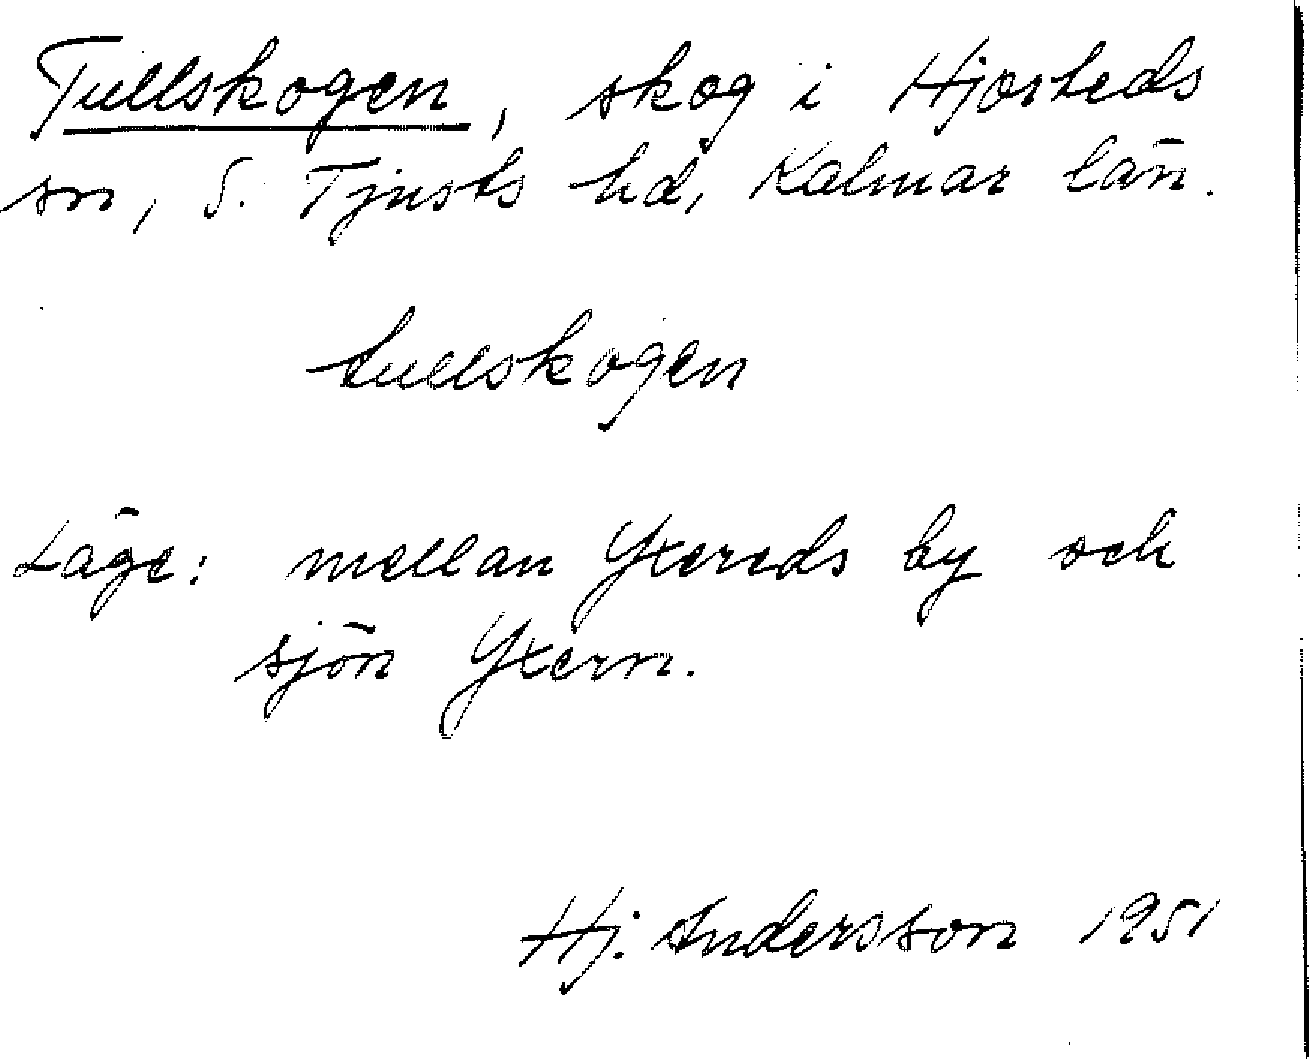 Tullskogen, skog i Hjorteds
sn, S. Tjusts hd, Kalmar län.
tullskogen
Läge: mellan Yxereds by och
sjön Yxern.
Hj. Andersson 1951